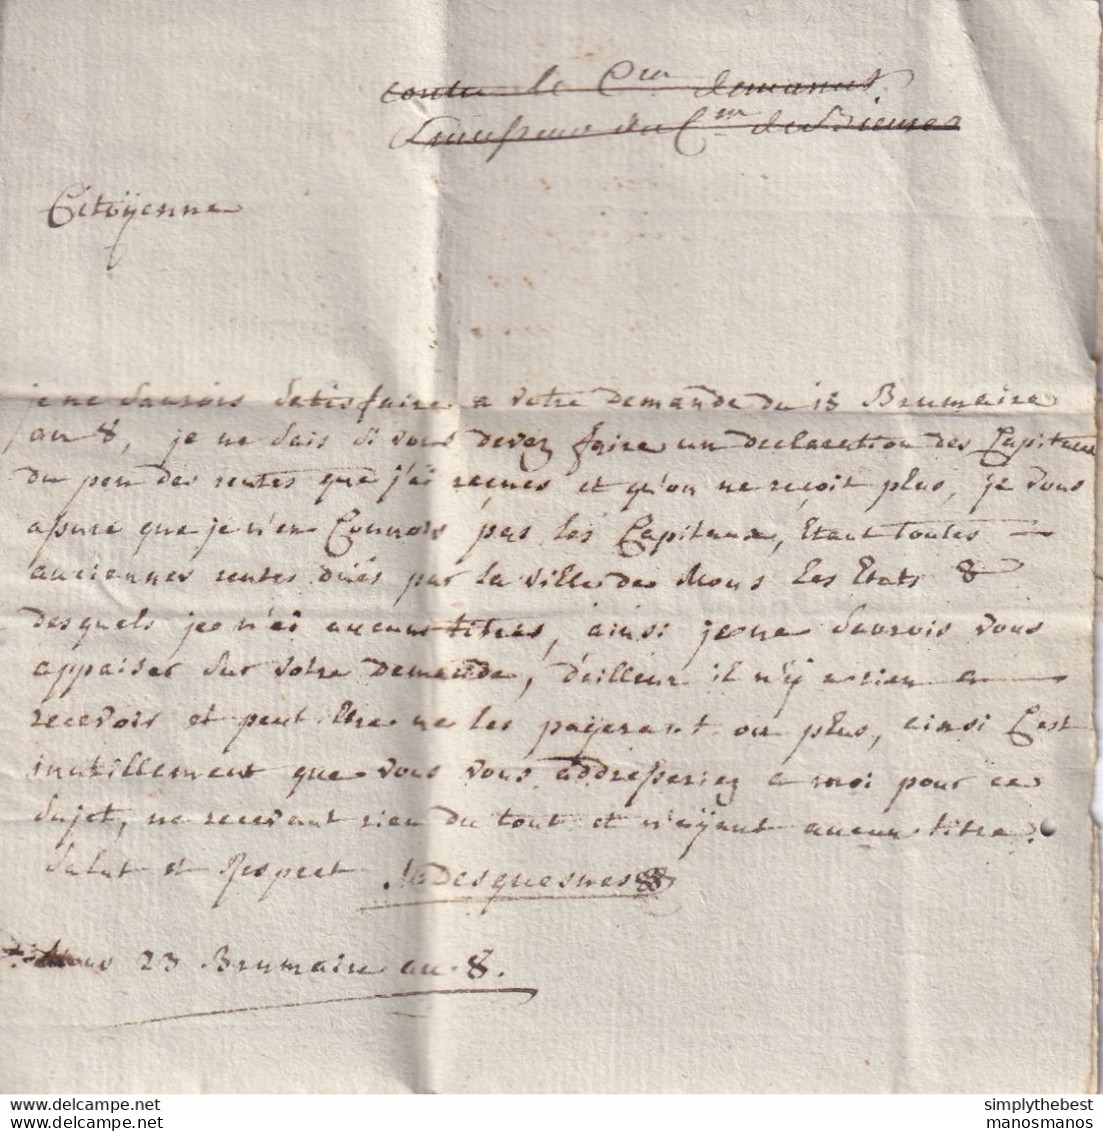 contre le C.en
du C.en
Citoÿenne
je ne saurois satisfaire a votre demande du 13 Brumaire
an 8, je ne sais si vous devez faire un declaration des Capitaux
du peu des rentes que j'ai reçues et qu'on ne reçoit plus, je vous
assure que je n'en Connois pas les Capitaux, etant toutes
anciennes rentes dûes par la ville de Mons les Etats &
desquels je n'ai aucuns titres, ainsi je ne saurois vous
appaiser sur votre demande, d'ailleur il n'ÿ a rien a
recevoir et peut etre ne les paÿeront on plus, ainsi C'est
inutillement que vous vous addresseriez a moi pour ce
sujet, ne recevant rien du tout et n'aÿant aucun titre.
Salut et Respect Desquesnes
Mons 23 Brumaire an 8.
simplythebest
manosmanos